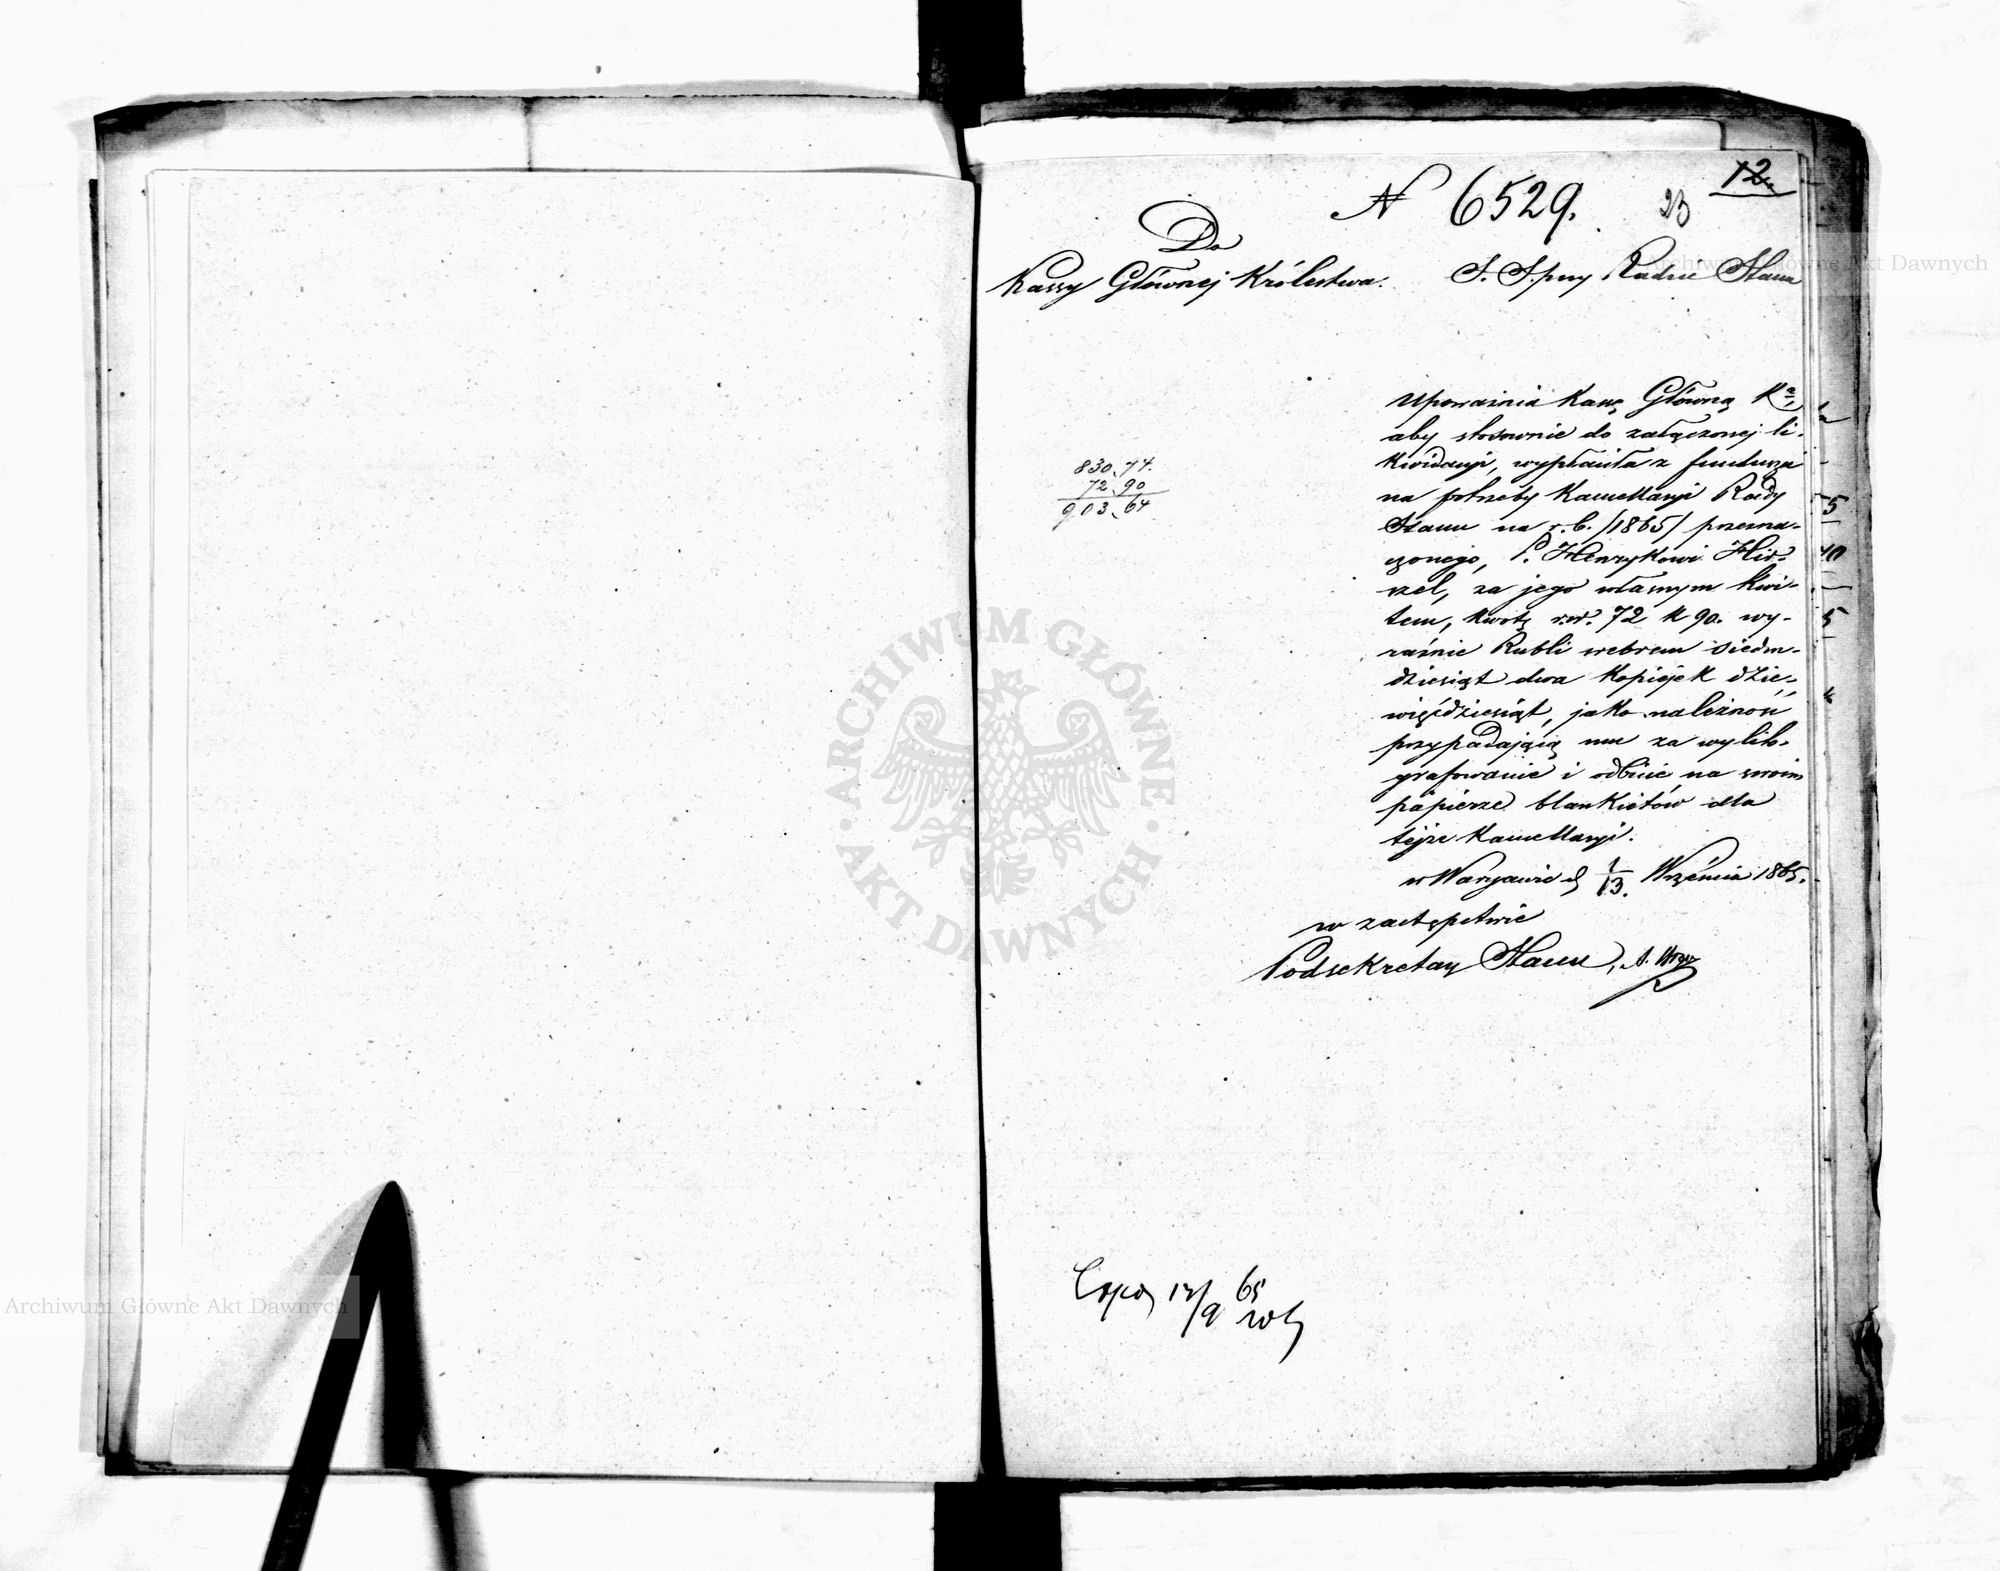 12.
N 6529.
23
Do
Kassy Głównej Królestwa.
S. S. przy Radzie Stanu
Upoważnia Kassę Główną Kª,
aby stosownie do załączonej li-
kwidacyi, wypłaciła z funduszu
na potrzeby Kancellaryi Rady
Stanu na r. b. /1865/ przezna-
czonego, P. Henrykowi Hir-
szel, za jego własnym kwi-
tem, kwotę rsr. 72 k 90. wy-
raźnie Rubli srebrem siedm-
dziesiąt dwa kopiejek dzie-
więćdziesiąt, jako należność
przypadającą mu za wylito-
grafowanie i odbicie na swoim
papierze blankietów dla
tejże Kancellaryi.
w Warszawie d. 1/13. Września 1865.
w zastępstwie
Podsekretarz Stanu,
830.74.
72.90
903.64
65
ARCHIWUM GŁÓWNE
AKT DAWNYCH
Archiwum Główne Akt Dawnych
Archiwum Główne Akt Dawnych